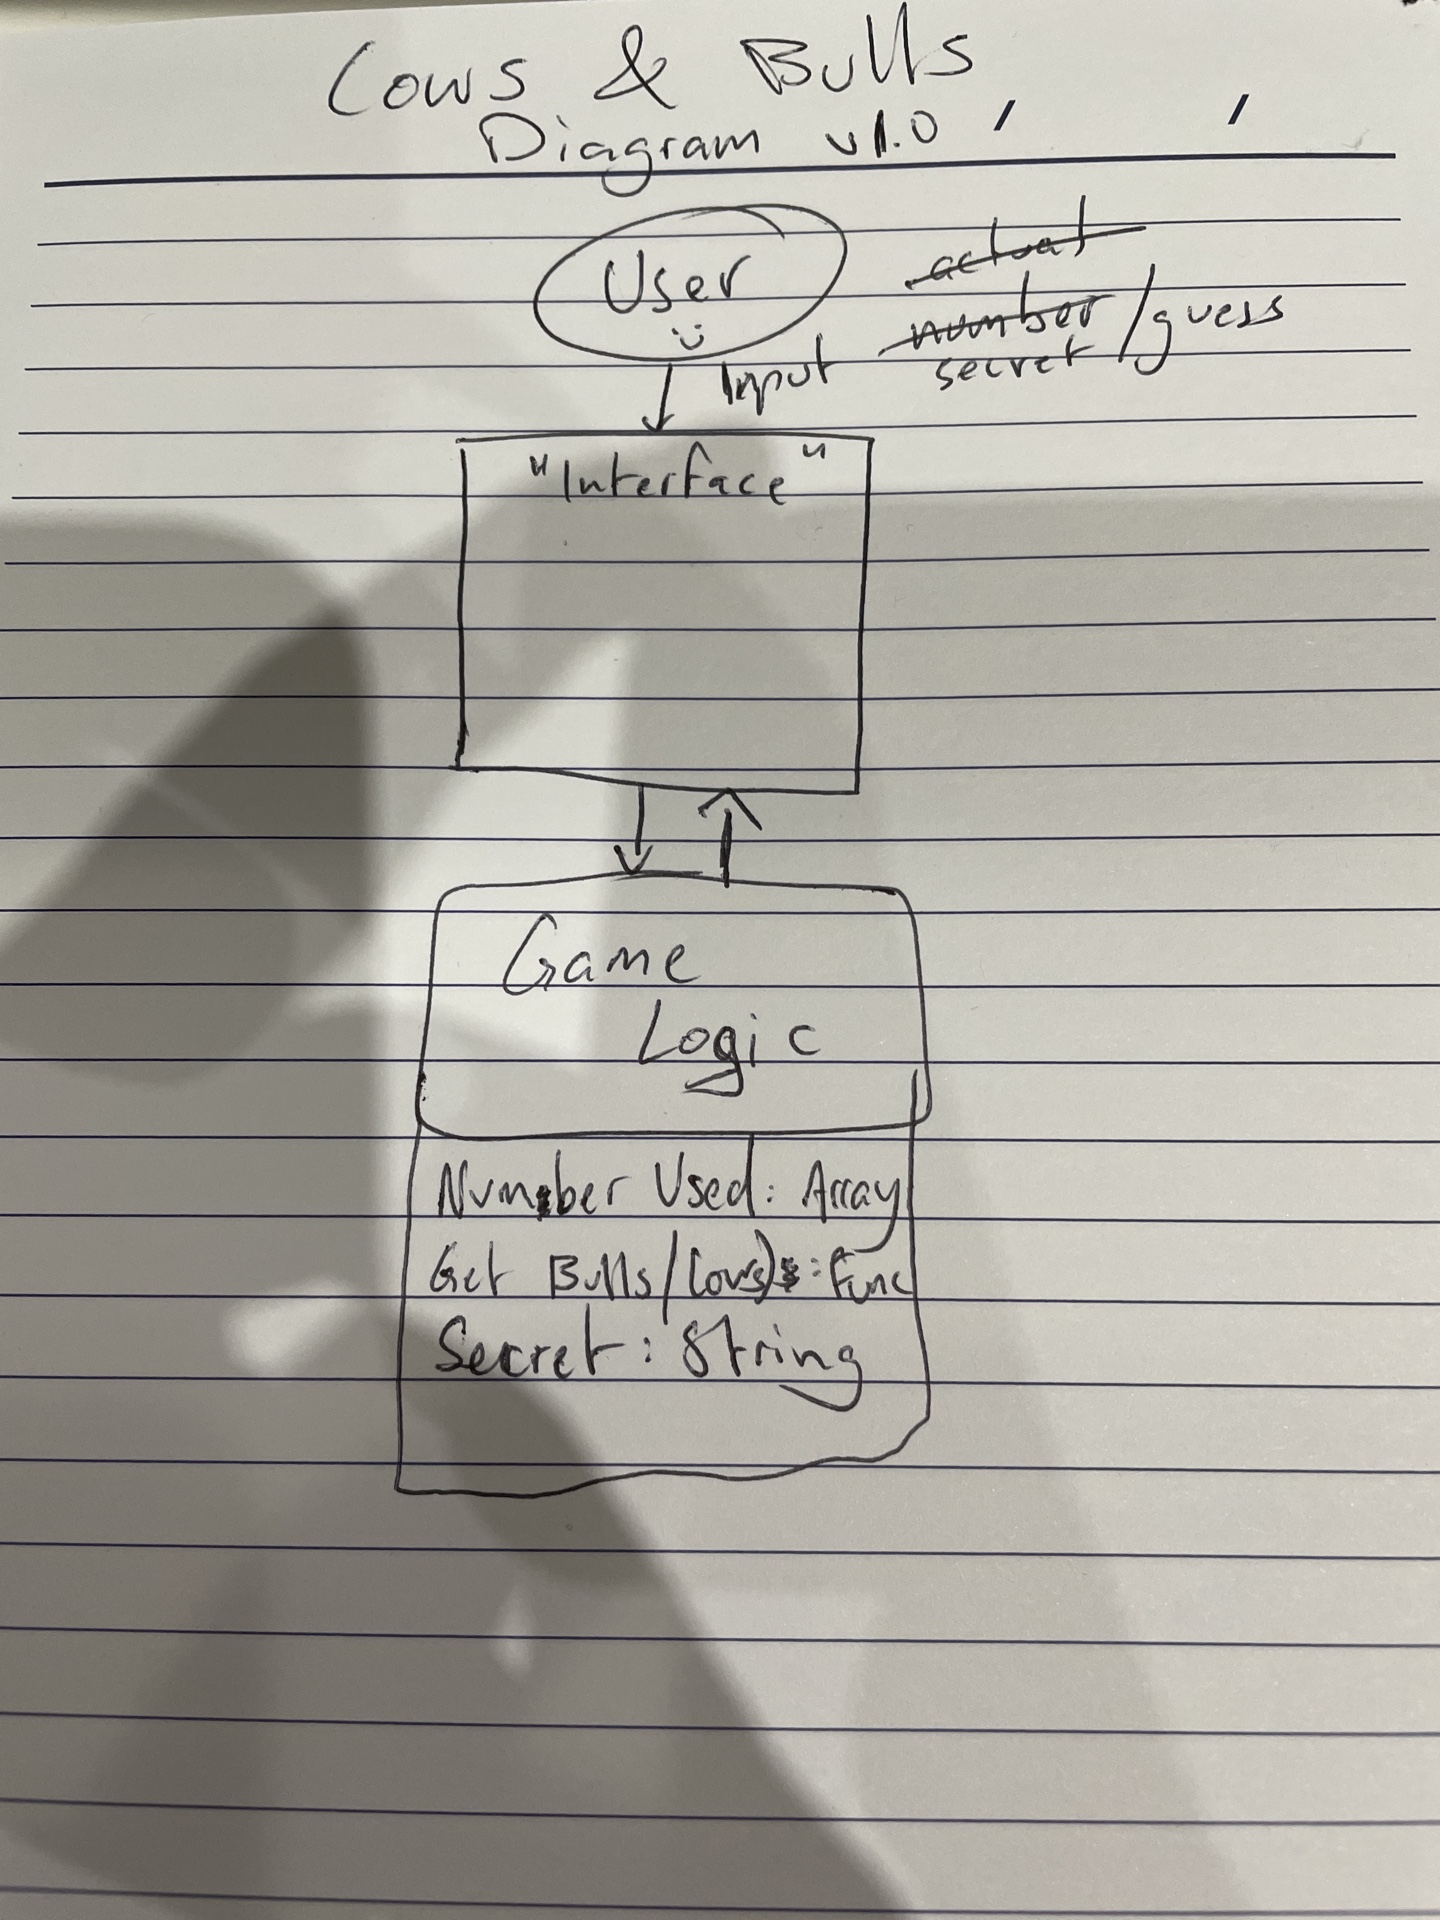 Cows & Bulls
Diagram v1.0
User
actual
number /guess
Input secret
"Interface"
Game
Logic
Number Used: Array
Get Bulls/Cows: Func
Secret: String